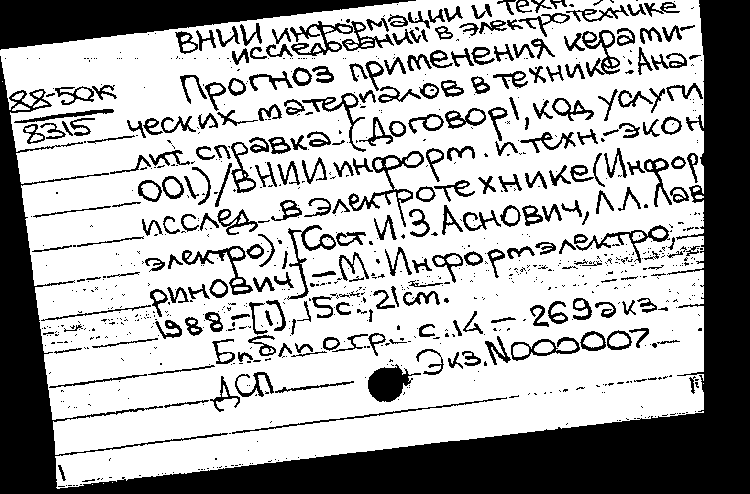 ВНИИ информации и техн.
исследований в электротехнике
88-50к
8315
Прогноз применения керами-
ческих материалов в технике: Ана-
лит справка: (Договор 1, код услуги
001)/ВНИИ информ. и техн.-экон
исслед. в электротехнике (Информ
электро); [Сост. И.З. Аснович, Л.Л. Лав
ринович]. — М.: Информэлектро,
1988. — [1], 15с.; 21 cm.
Библиогр.: с. 14 — 269 экз.
Экз. N000007.
ДСП